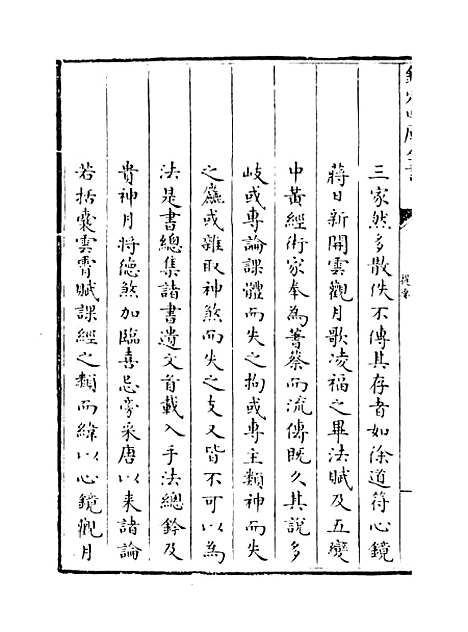 欽定四庫全書
提要
三家然多散佚不傳其存者如徐道符心鏡
蔣日新開雲觀月歌凌福之畢法賦及五變
中黃經術家奉為蓍蔡而流傳既久其說多
岐或專論課體而失之拘或專主類神而失
之龐或雜取神煞而失之支又皆不可以為
法是書總集諸書遺文首載入手法總鈐及
貴神月將德煞加臨喜忌旁采唐以来諸論
若括囊雲霄賦課經之類而緯以心鏡觀月